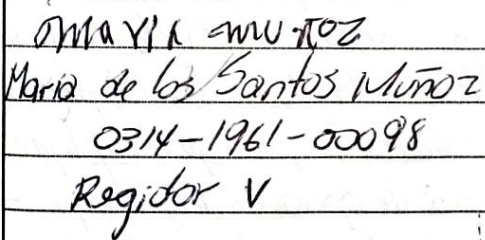 Maria Muñoz
Maria de los Santos Muñoz
0314-1961-00098
Regidor V